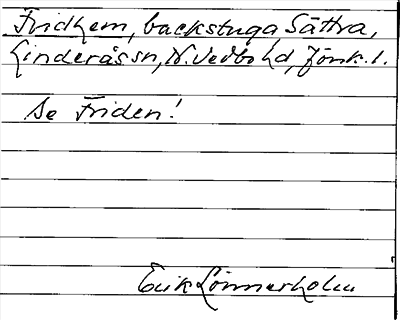 Fridhem, backstuga Sättra,
Linderås sn, N. Vedbo hd, Jönk. l.
Se Friden!
Erik Lönnerholm